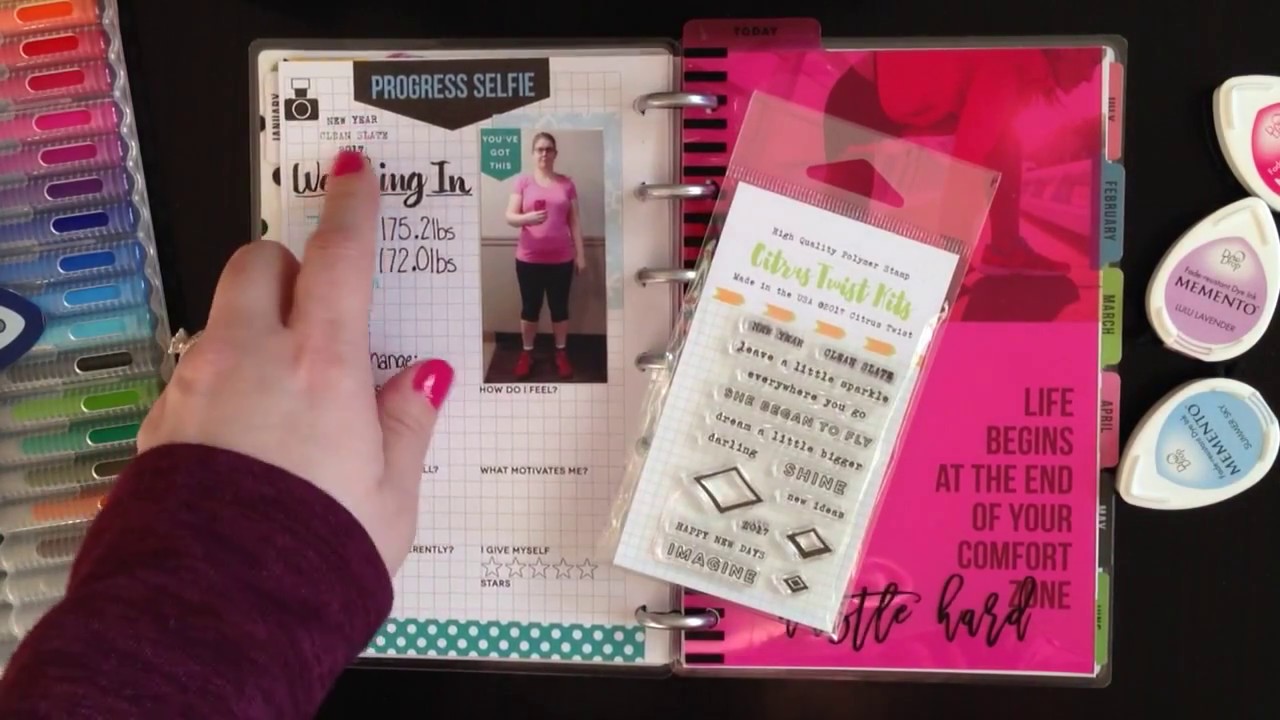 PROGRESS SELFIE
JANUARY
NEW YEAR
CLEAN SLATE
2017
ing In
YOU'VE
GOT
THIS
175.2lbs
172.0lbs
HOW DO I FEEL?
WHAT MOTIVATES ME?
I GIVE MYSELF
STARS
TODAY
High Quality Polymer Stamp
Citrus Twist Kits
Made in the USA ©2017 Citrus Twist
NEW YEAR
CLEAN SLATE
leave a little sparkle
everywhere you go
SHE BEGAN TO FLY
dream a little bigger
darling
SHINE
new ideas
2017
HAPPY NEW DAYS
IMAGINE
LIFE
BEGINS
AT THE END
OF YOUR
COMFORT
ZONE
hard
FEBRUARY
MARCH
APRIL
MAY
Dew Drop
Fade-resistant Dye Ink
MEMENTO
LULU LAVENDER
Dew Drop
Fade-resistant Dye Ink
MEMENTO
SUMMER SKY